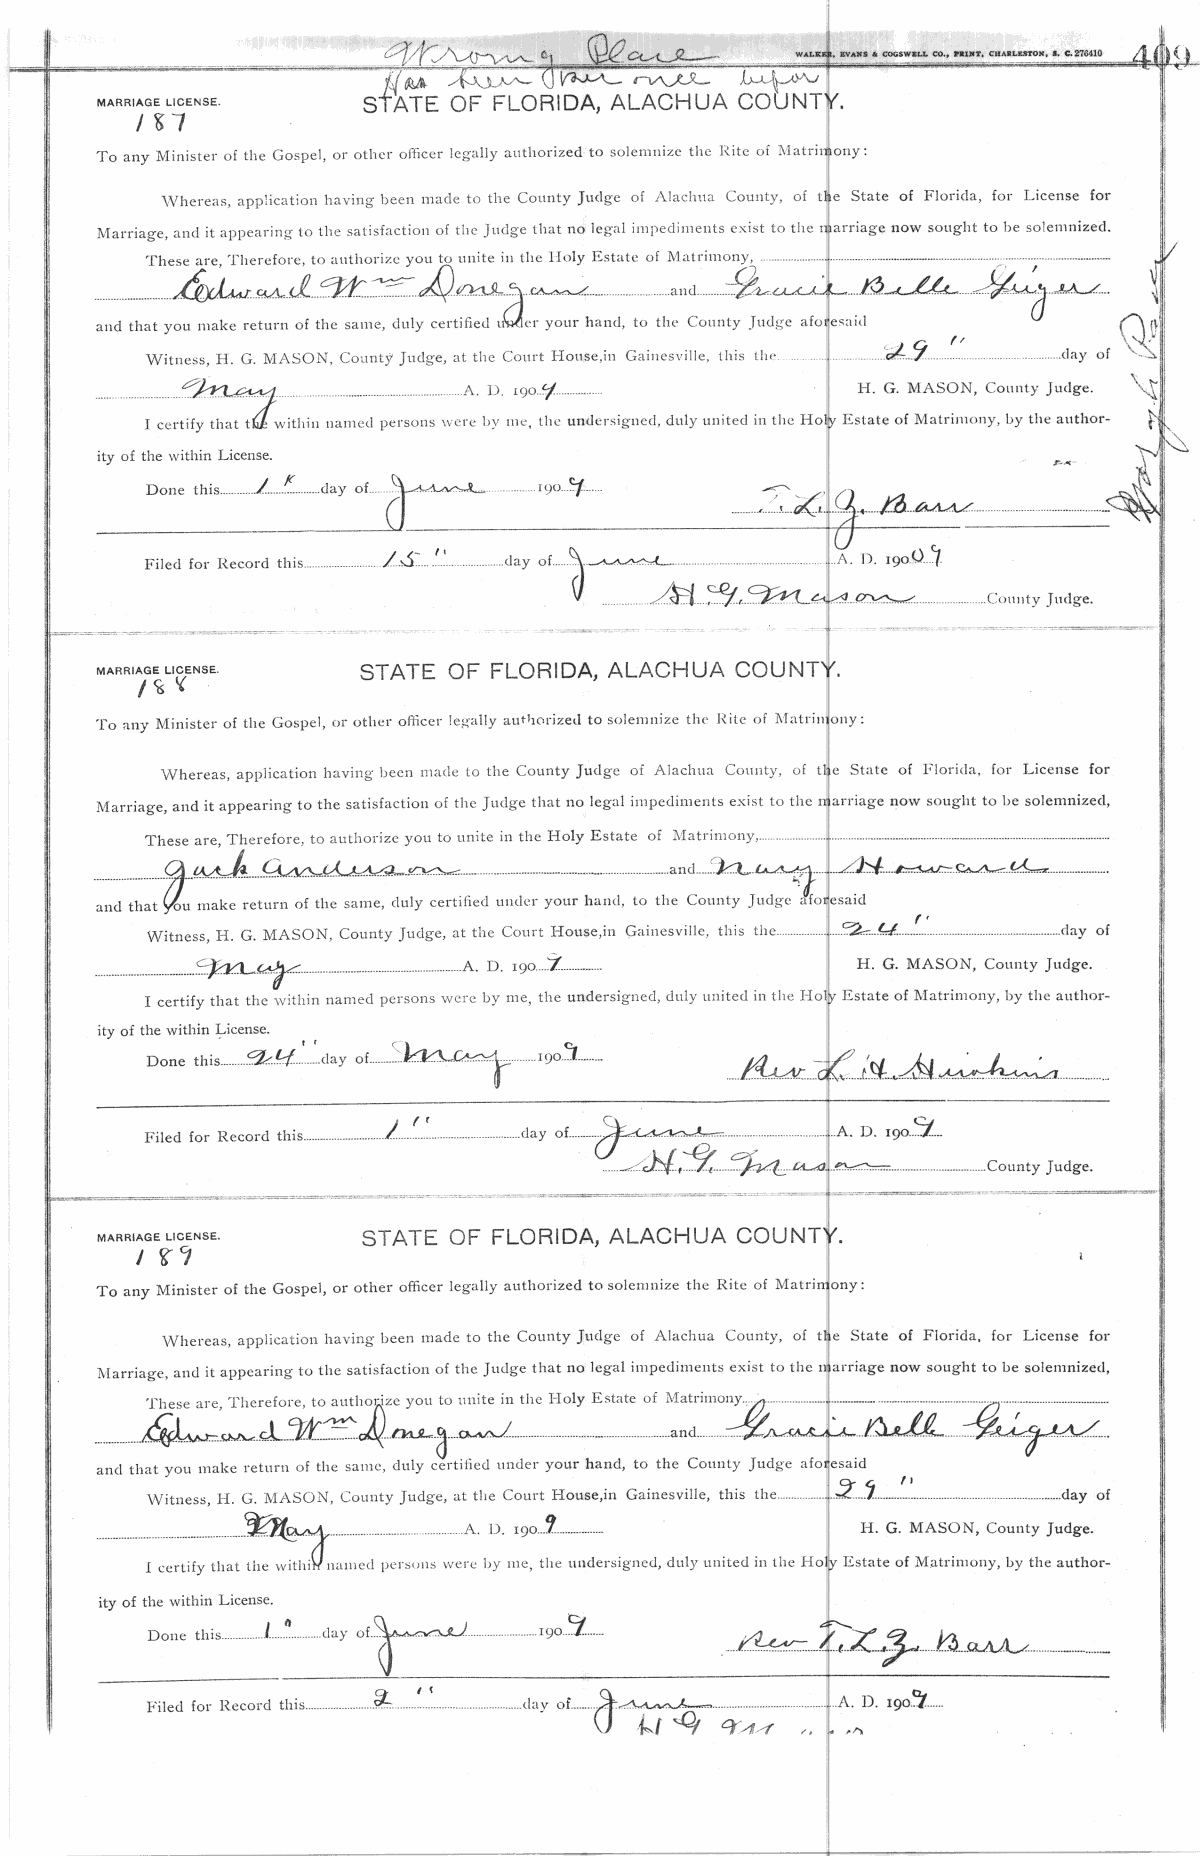 Wrong Place
WALKER, EVANS & COGSWELL CO., PRINT, CHARLESTON, S. C. 276410
409
Has been over once befor
MARRIAGE LICENSE.
STATE OF FLORIDA, ALACHUA COUNTY.
187
To any Minister of the Gospel, or other officer legally authorized to solemnize the Rite of Matrimony:
Whereas, application having been made to the County Judge of Alachua County, of the State of Florida, for License for
Marriage, and it appearing to the satisfaction of the Judge that no legal impediments exist to the marriage now sought to be solemnized.
These are, Therefore, to authorize you to unite in the Holy Estate of Matrimony,
Edward Wm Donegan and Gracie Belle Geiger
and that you make return of the same, duly certified under your hand, to the County Judge aforesaid
Witness, H. G. MASON, County Judge, at the Court House, in Gainesville, this the 29" day of
May A. D. 1909 H. G. MASON, County Judge.
I certify that the within named persons were by me, the undersigned, duly united in the Holy Estate of Matrimony, by the author-
ity of the within License.
Done this 1st day of June 1909
T. L. Z. Barr
Filed for Record this 15" day of June A. D. 19009
H. G. Mason County Judge.
MARRIAGE LICENSE.
STATE OF FLORIDA, ALACHUA COUNTY.
188
To any Minister of the Gospel, or other officer legally authorized to solemnize the Rite of Matrimony:
Whereas, application having been made to the County Judge of Alachua County, of the State of Florida, for License for
Marriage, and it appearing to the satisfaction of the Judge that no legal impediments exist to the marriage now sought to be solemnized,
These are, Therefore, to authorize you to unite in the Holy Estate of Matrimony,
Jack Anderson and Mary Howard
and that you make return of the same, duly certified under your hand, to the County Judge aforesaid
Witness, H. G. MASON, County Judge, at the Court House, in Gainesville, this the 24" day of
May A. D. 1909 H. G. MASON, County Judge.
I certify that the within named persons were by me, the undersigned, duly united in the Holy Estate of Matrimony, by the author-
ity of the within License.
Done this 24" day of May 1909
Rev L. H.
Filed for Record this 1" day of June A. D. 1909
H. G. Mason County Judge.
MARRIAGE LICENSE.
STATE OF FLORIDA, ALACHUA COUNTY.
189
To any Minister of the Gospel, or other officer legally authorized to solemnize the Rite of Matrimony:
Whereas, application having been made to the County Judge of Alachua County, of the State of Florida, for License for
Marriage, and it appearing to the satisfaction of the Judge that no legal impediments exist to the marriage now sought to be solemnized,
These are, Therefore, to authorize you to unite in the Holy Estate of Matrimony,
Edward Wm Donegan and Gracie Belle Geiger
and that you make return of the same, duly certified under your hand, to the County Judge aforesaid
Witness, H. G. MASON, County Judge, at the Court House, in Gainesville, this the 29" day of
May A. D. 1909 H. G. MASON, County Judge.
I certify that the within named persons were by me, the undersigned, duly united in the Holy Estate of Matrimony, by the author-
ity of the within License.
Done this 1" day of June 1909
Rev T. L. Z. Barr
Filed for Record this 2" day of June A. D. 1909